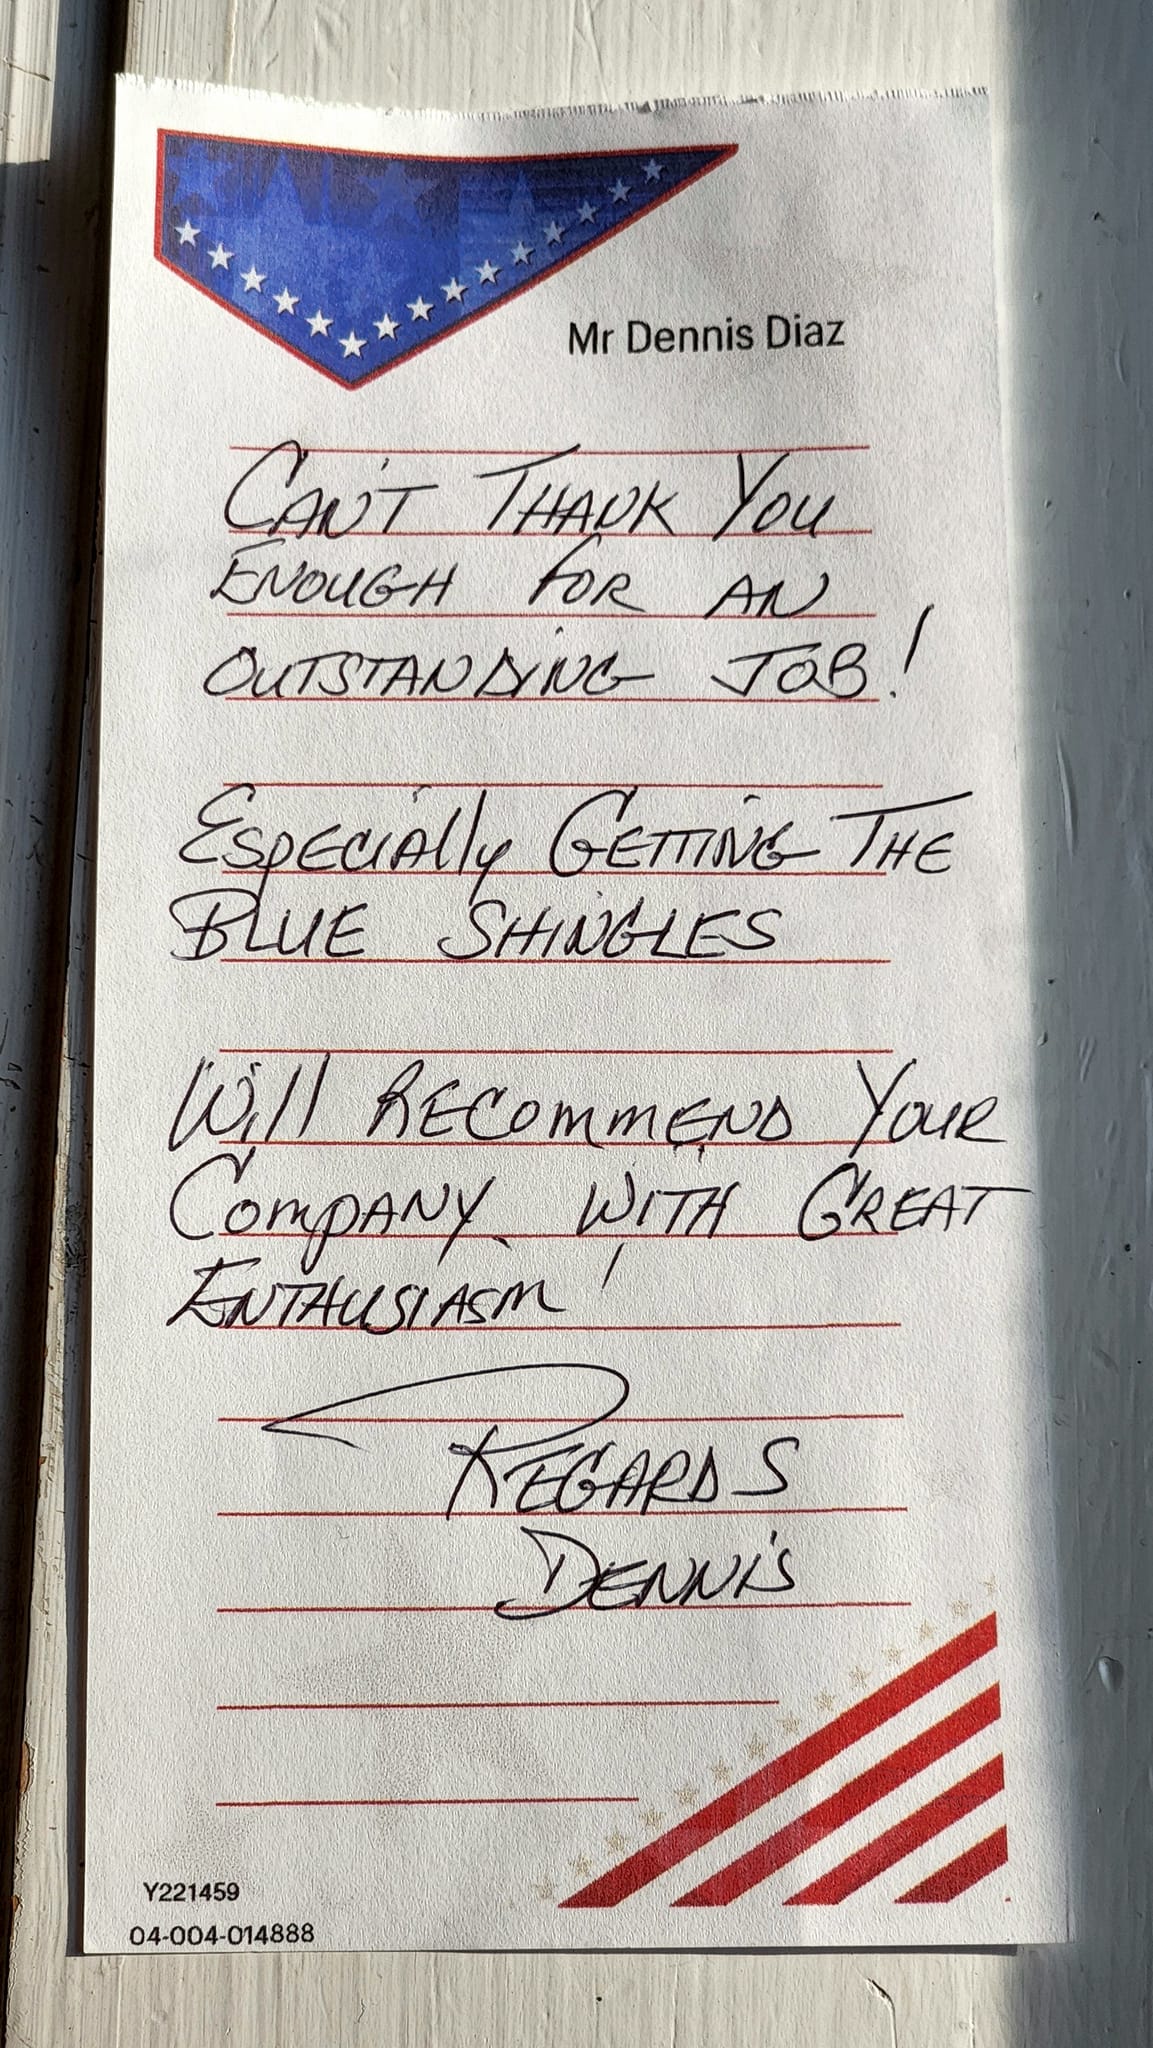 Mr Dennis Diaz
CAN'T THANK YOU
ENOUGH FOR AN
OUTSTANDING JOB!
ESPECIAlly GETTING THE
BLUE SHINGLES
Will RECOmmEND YOUR
COmPANY WITH GREAT
ENTHUSIASm!
REGARDS
DENNIS
Y221459
04-004-014888